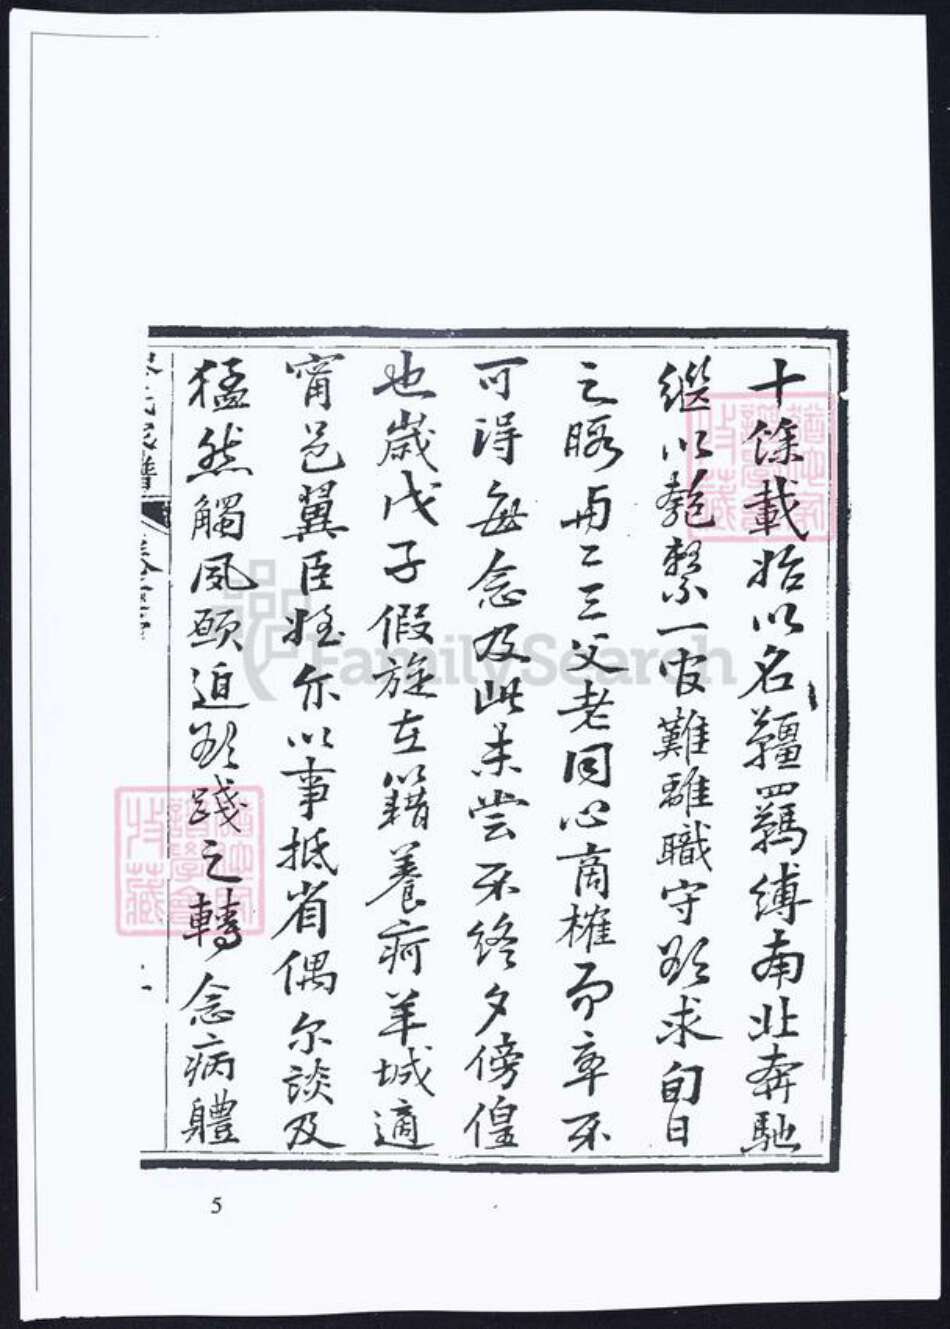 十餘載始以名韁羈縛南北奔馳
繼以匏繫一官難離職守欲求旬日
之暇与二三父老同心商榷而卒不
可得每念及此未尝不終夕傍偟
也歲戊子假旋在籍養疴羊城適
甯邑翼臣姪亦以事抵省偶尔談及
猛然觸夙願迫欲踐之轉念病體
氏族譜
5
FamilySearch